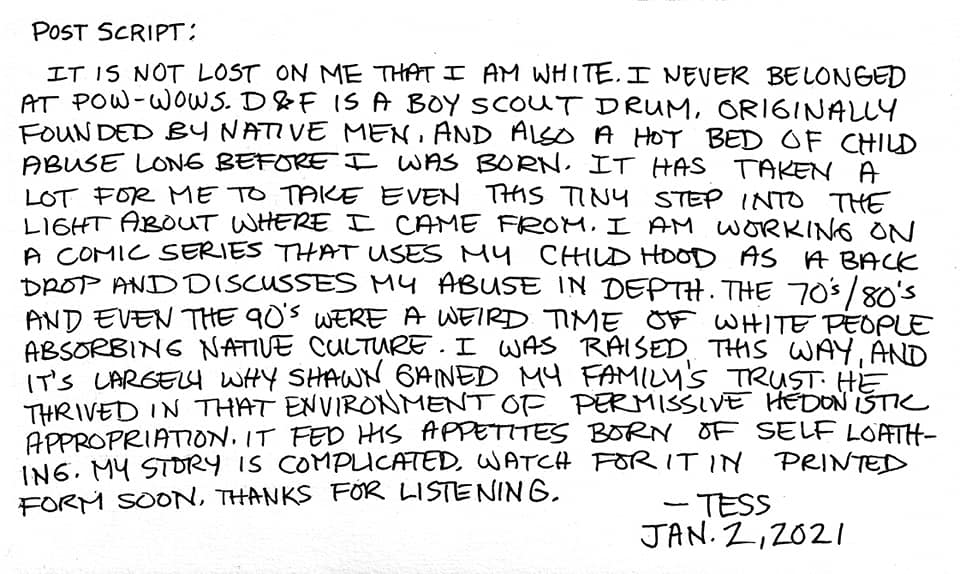 POST SCRIPT:
IT IS NOT LOST ON ME THAT I AM WHITE. I NEVER BELONGED
AT POW-WOWS. D&F IS A BOY SCOUT DRUM, ORIGINALLY
FOUNDED BY NATIVE MEN, AND ALSO A HOT BED OF CHILD
ABUSE LONG BEFORE I WAS BORN. IT HAS TAKEN A
LOT FOR ME TO TAKE EVEN THIS TINY STEP INTO THE
LIGHT ABOUT WHERE I CAME FROM. I AM WORKING ON
A COMIC SERIES THAT USES MY CHILD HOOD AS A BACK
DROP AND DISCUSSES MY ABUSE IN DEPTH. THE 70's/80's
AND EVEN THE 90's WERE A WEIRD TIME OF WHITE PEOPLE
ABSORBING NATIVE CULTURE. I WAS RAISED THIS WAY, AND
IT'S LARGELY WHY SHAWN GAINED MY FAMILY'S TRUST. HE
THRIVED IN THAT ENVIRONMENT OF PERMISSIVE HEDONISTIC
APPROPRIATION. IT FED HIS APPETITES BORN OF SELF LOATH-
ING. MY STORY IS COMPLICATED. WATCH FOR IT IN PRINTED
FORM SOON. THANKS FOR LISTENING.
— TESS
JAN. 2, 2021